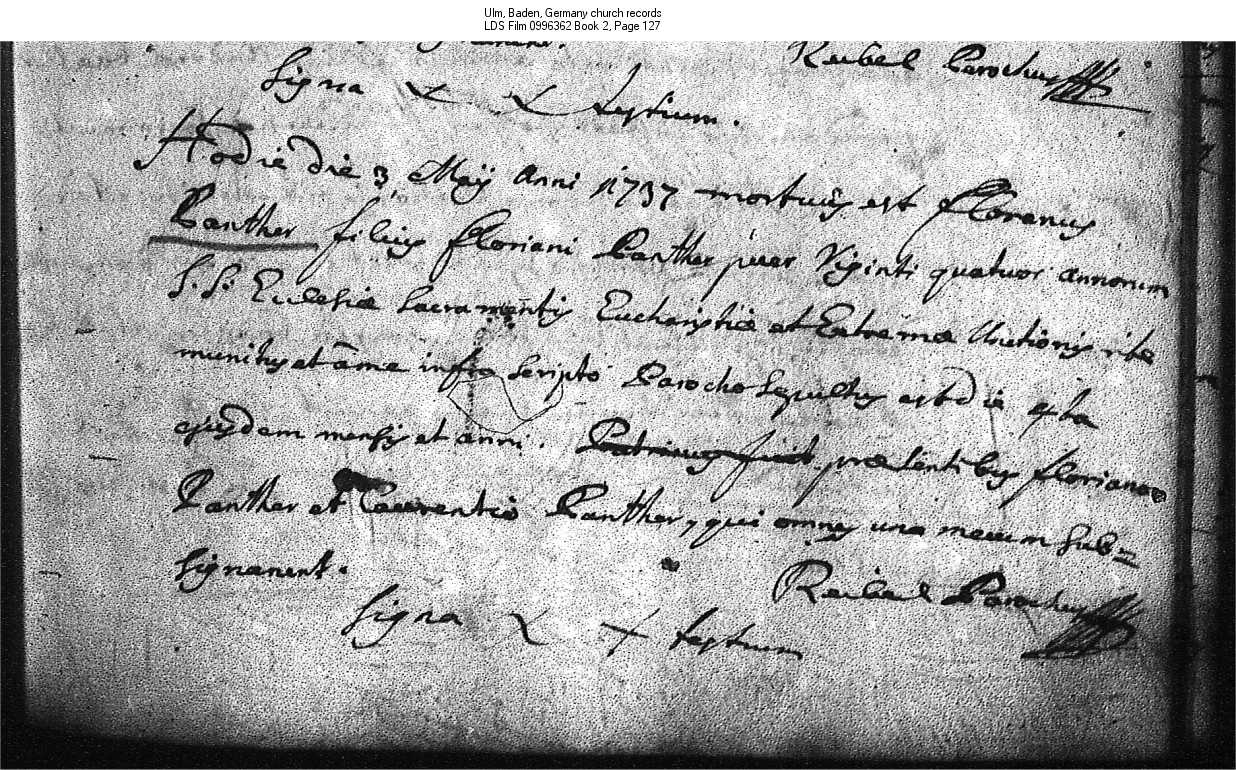 Ulm, Baden, Germany church records
LDS Film 0996362 Book 2, Page 127
Reibel Parochus
Signa testium.
Hodie die 3 Maÿ Anni 1737 mortuus est Floranus
Panther filius Floriani Panther puer Viginti quatuor annorum
S. S. Ecclesiæ Sacramentis Eucharistiæ et Extremæ Unctionis rite
munitus et a me infra scripto Parocho sepultus est die 4ta
ejusdem mensis et anni. præsentibus Floriano
Panther et Laurentio Panther, qui omnes una mecum sub=
signarent.
Reibel Parochus
Signa + testium